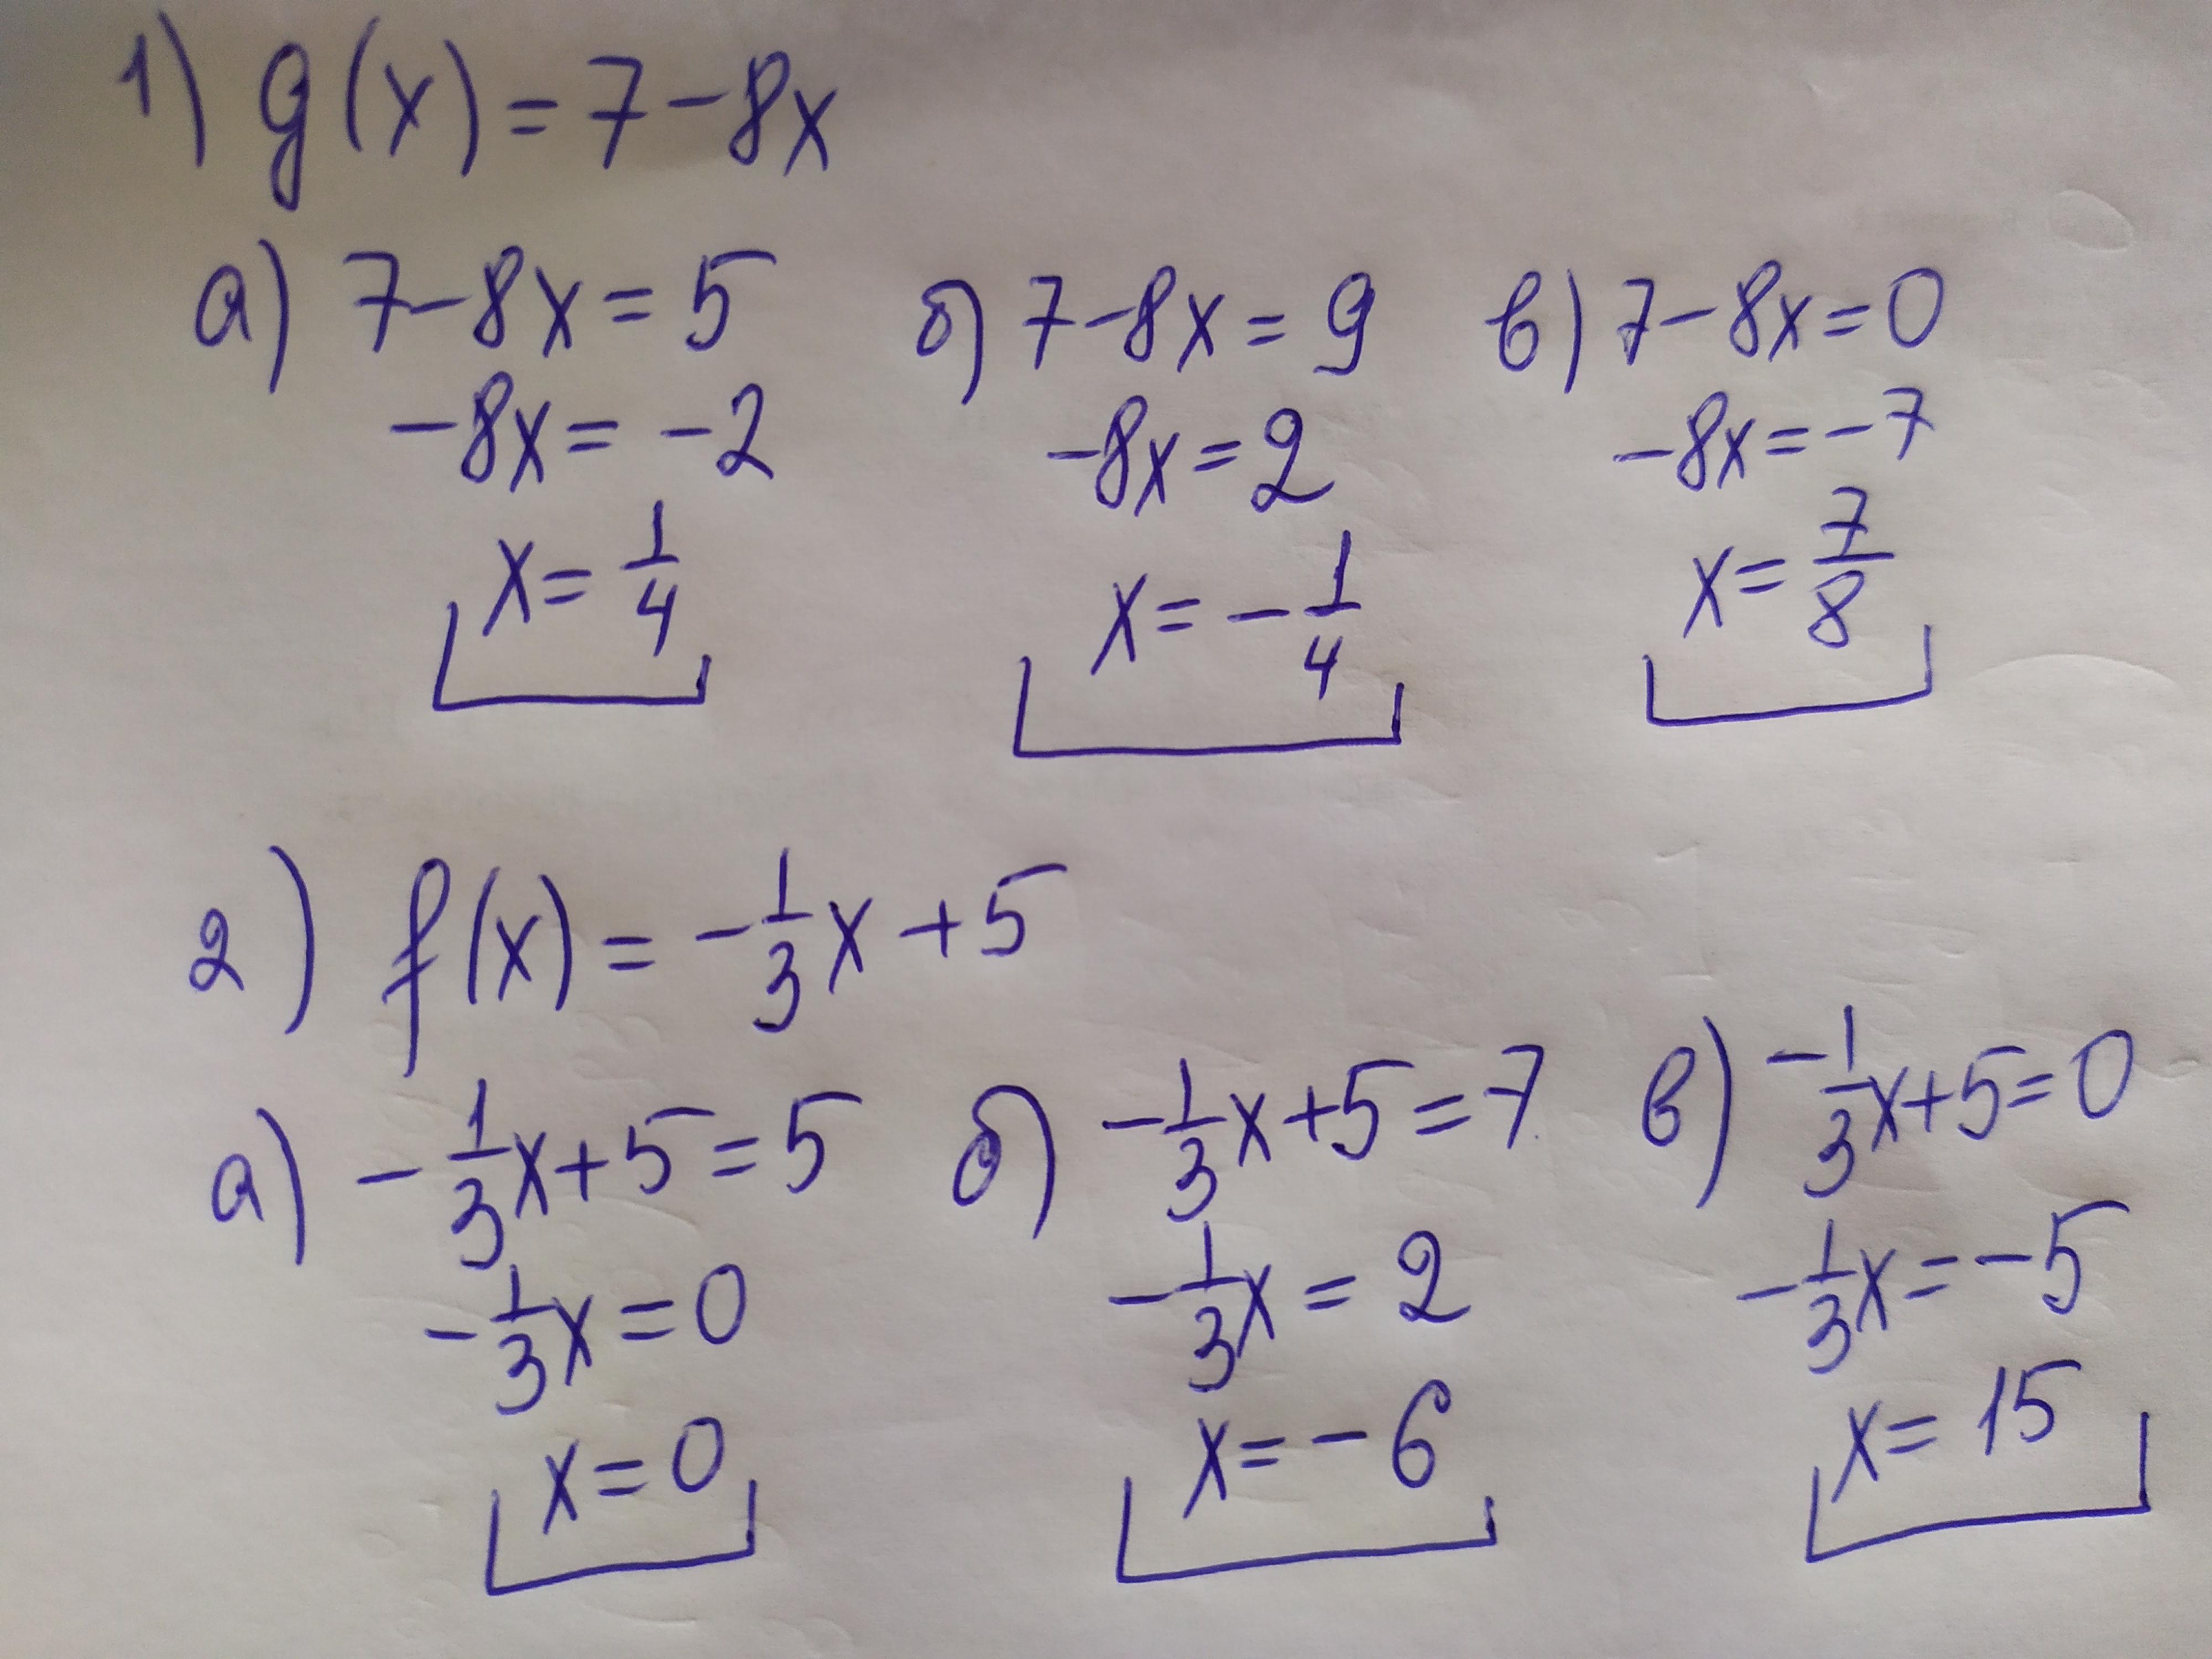 1) g(x) = 7 - 8x
а) 7 - 8x = 5
-8x = -2
x = 1/4
б) 7 - 8x = 9
-8x = 2
x = -1/4
в) 7 - 8x = 0
-8x = -7
x = 7/8
2) f(x) = -1/3x + 5
а) -1/3x + 5 = 5
-1/3x = 0
x = 0
б) -1/3x + 5 = 7
-1/3x = 2
x = -6
в) -1/3x + 5 = 0
-1/3x = -5
x = 15